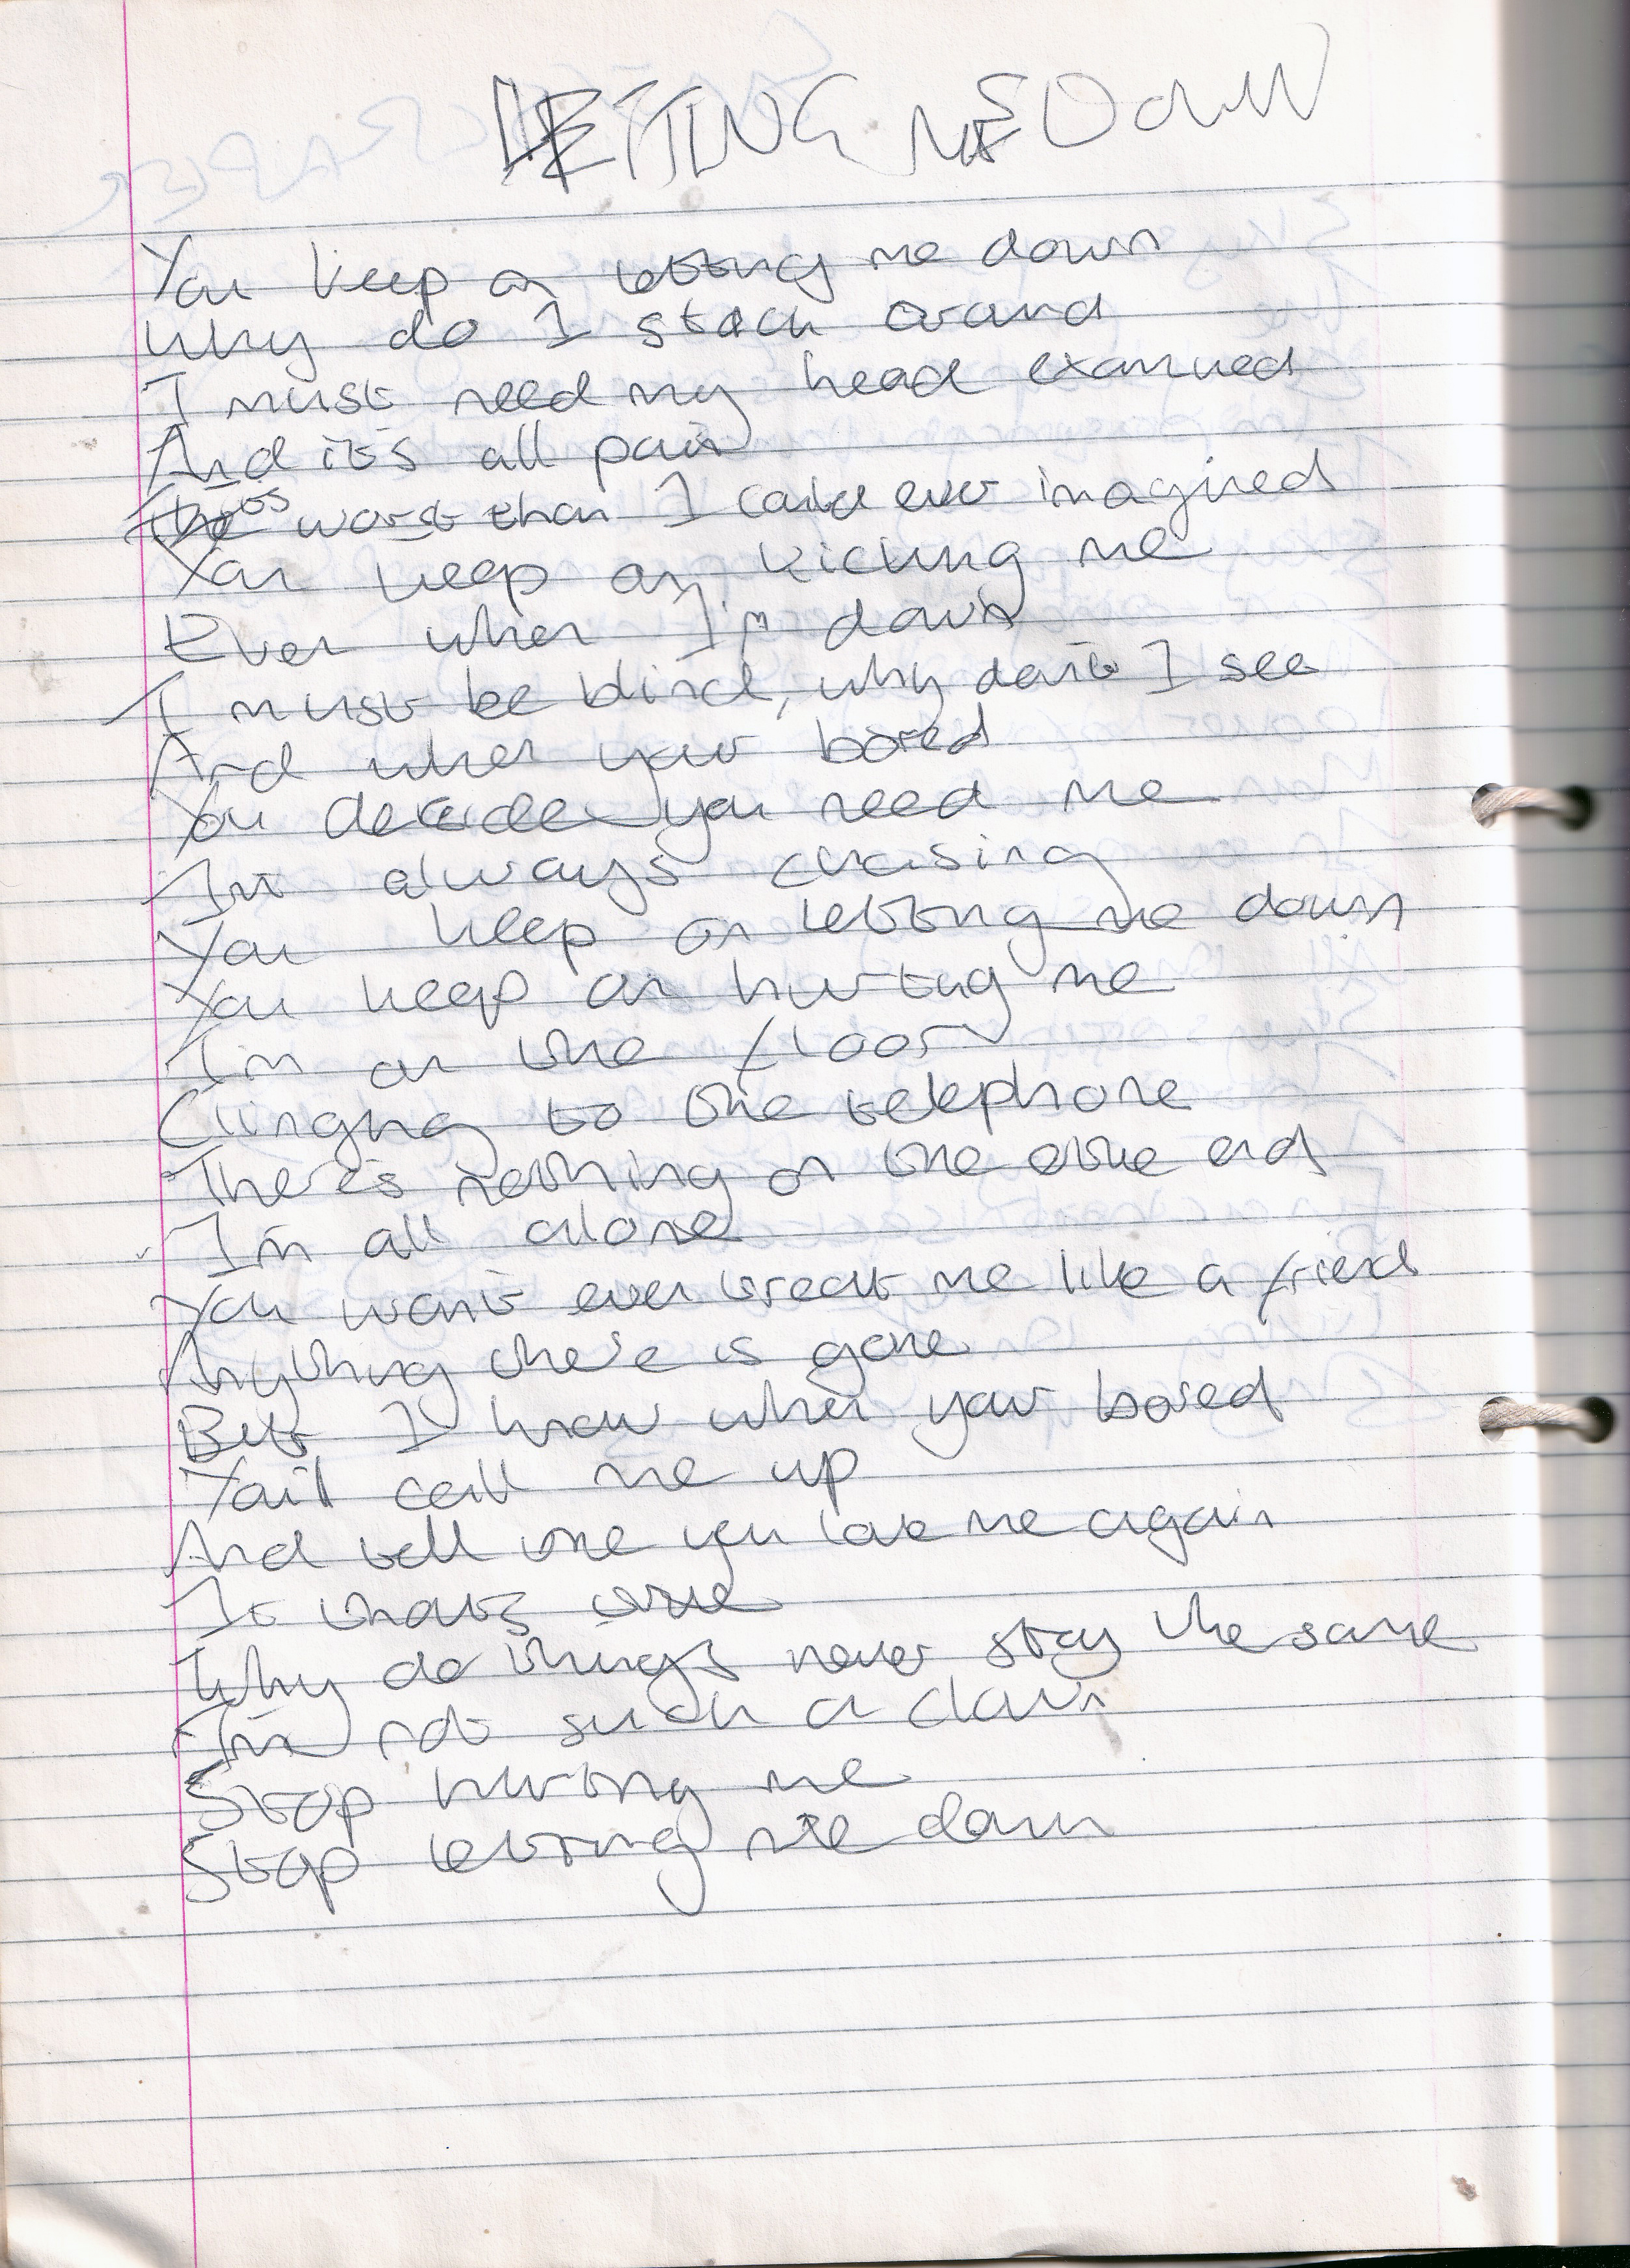 LETTING ME DOWN
You keep on letting me down
Why do I stick around
I must need my head examined
And it's all pain
It's worst than I could ever imagined
You keep on kicking me
Even when I'm down
I must be blind, why don't I see
And when your bored
You decide you need me
I'm always chasing
You keep on letting me down
You keep on hurting me
I'm on the floor
Clinging to the telephone
There's nothing on the other end
I'm all alone
You won't even treat me like a friend
Anything there is gone
But I know when your bored
You'll call me up
And tell me you love me again
Is that true
Why do things never stay the same
I'm not such a clown
Stop hurting me
Stop letting me down